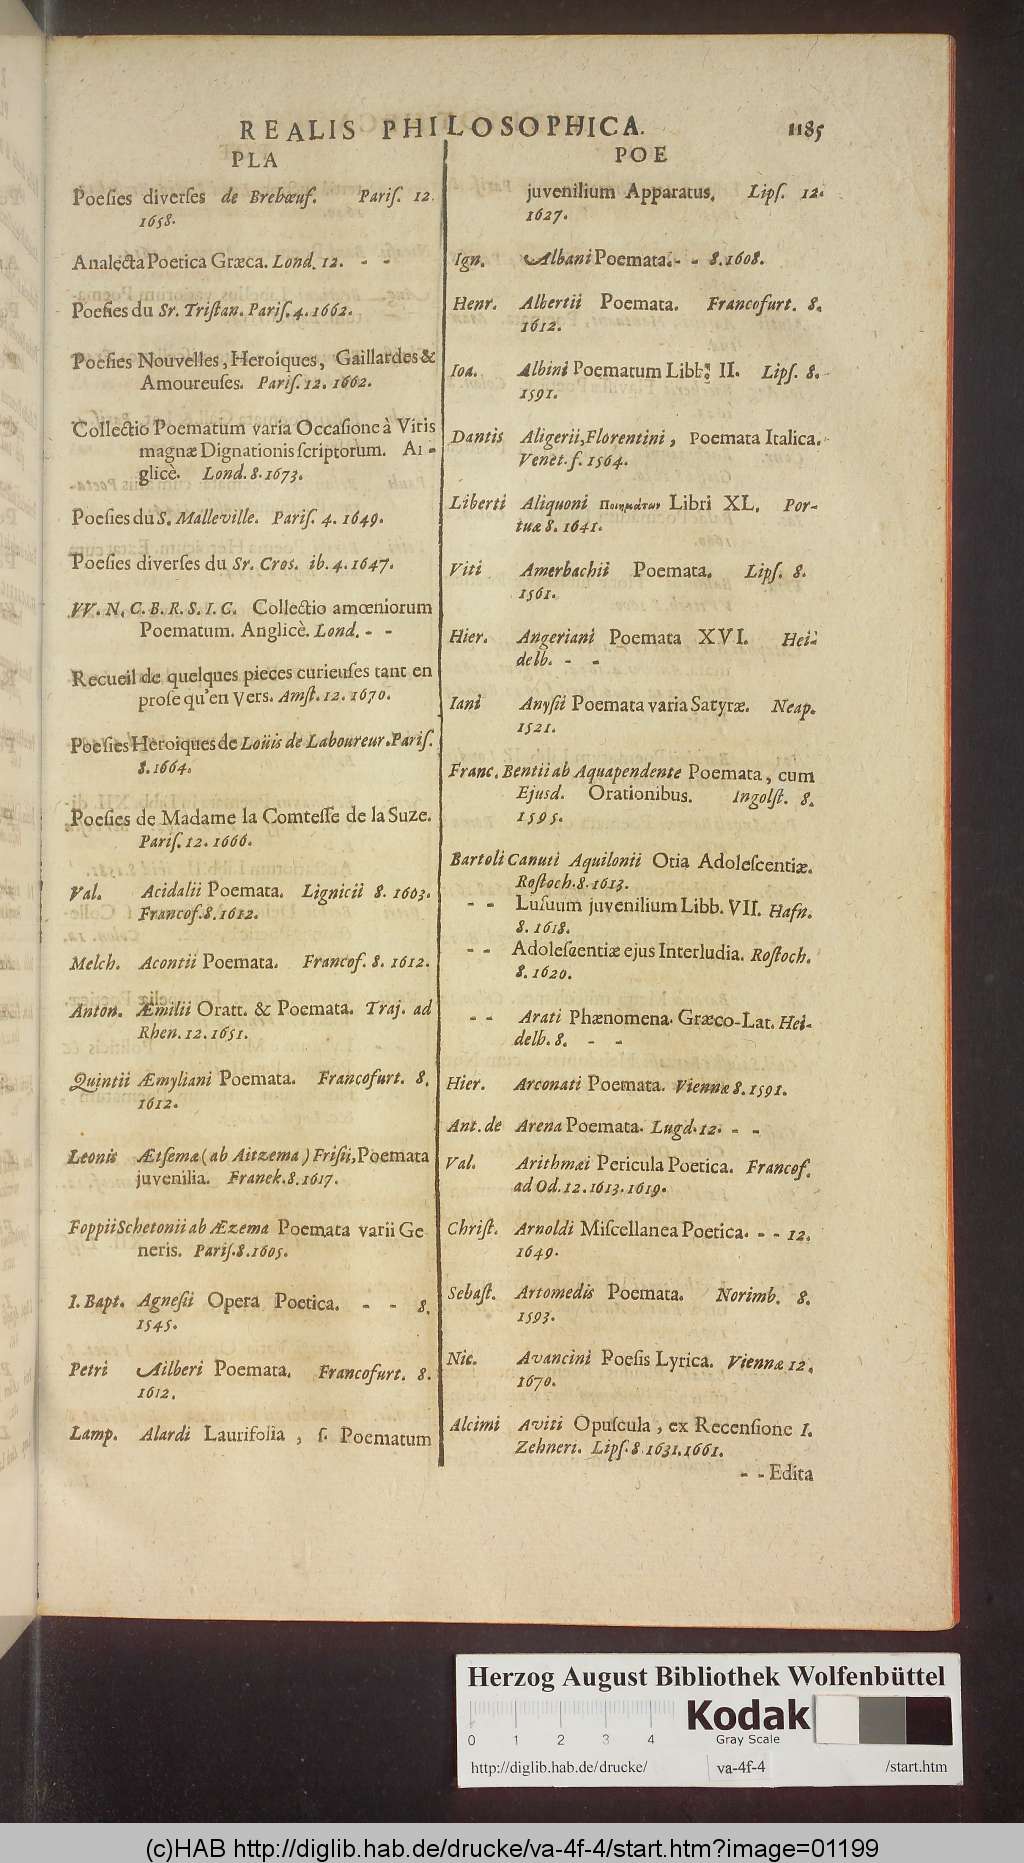 REALIS PHILOSOPHICA.
1185
PLA
Poeſies diverſes de Brebœuf. Pariſ. 12.
1658.
Analecta Poetica Græca. Lond. 12. - -
Poeſies du Sr. Triſtan. Pariſ. 4. 1662.
Poeſies Nouvelles, Heroiques, Gaillardes &
Amoureuſes. Pariſ. 12. 1662.
Collectio Poematum varia Occaſione à Viris
magnæ Dignationis ſcriptorum. A1-
glicè. Lond. 8. 1673.
Poeſies du S. Malleville. Pariſ. 4. 1649.
Poeſies diverſes du Sr. Cros. ib. 4. 1647.
VV. N. C. B. R. S. I. C. Collectio amœniorum
Poematum. Anglicè. Lond. - -
Recueil de quelques pieces curieuſes tant en
proſe qu'en Vers. Amſt. 12. 1670.
Poeſies Heroiques de Loüis de Laboureur. Pariſ.
8. 1664.
Poeſies de Madame la Comteſſe de la Suze.
Pariſ. 12. 1666.
Val. Acidalii Poemata. Lignicii 8. 1603.
Francof. 8. 1612.
Melch. Acontii Poemata. Francof. 8. 1612.
Anton. Æmilii Oratt. & Poemata. Traj. ad
Rhen. 12. 1651.
Quintii Æmyliani Poemata. Francofurt. 8.
1612.
Leonis Ætſemæ (ab Aitzema) Friſii, Poemata
juvenilia. Franek. 8. 1617.
Foppii Schetonii ab Æzema Poemata varii Ge
neris. Pariſ. 8. 1605.
I. Bapt. Agneſii Opera Poetica. - - 8.
1545.
Petri Ailberi Poemata. Francofurt. 8.
1612.
Lamp. Alardi Laurifolia, ſ. Poematum
POE
juvenilium Apparatus. Lipſ. 12.
1627.
Ign. Albani Poemata. - - 8. 1608.
Henr. Albertii Poemata. Francofurt. 8.
1612.
Ioa. Albini Poematum Libb. II. Lipſ. 8.
1591.
Dantis Aligerii, Florentini, Poemata Italica.
Venet. f. 1564.
Liberti Aliquoni Ποιημάτων Libri XL. Por-
tuæ 8. 1641.
Viti Amerbachii Poemata. Lipſ. 8.
1561.
Hier. Angeriani Poemata XVI. Hei-
delb. - -
Iani Anyſii Poemata varia Satyræ. Neap.
1521.
Franc. Bentii ab Aquapendente Poemata, cum
Ejusd. Orationibus. Ingolſt. 8.
1595.
Bartoli Canuti Aquilonii Otia Adoleſcentiæ.
Roſtoch. 8. 1613.
- - Luſuum juvenilium Libb. VII. Hafn.
8. 1618.
- - Adoleſcentiæ ejus Interludia. Roſtoch.
8. 1620.
- - Arati Phænomena. Græco-Lat. Hei-
delb. 8. - -
Hier. Arconati Poemata. Viennæ 8. 1591.
Ant. de Arena Poemata. Lugd. 12. - -
Val. Arithmæi Pericula Poetica. Francof.
ad Od. 12. 1613. 1619.
Chriſt. Arnoldi Miſcellanea Poetica. - - 12.
1649.
Sebaſt. Artomedis Poemata. Norimb. 8.
1593.
Nic. Avancini Poeſis Lyrica. Viennæ 12.
1670.
Alcimi Aviti Opuſcula, ex Recenſione I.
Zehneri. Lipſ. 8. 1631. 1661.
- - Edita
Herzog August Bibliothek Wolfenbüttel
0 1 2 3 4
Kodak
Gray Scale
http://diglib.hab.de/drucke/ va-4f-4 /start.htm
(c)HAB http://diglib.hab.de/drucke/va-4f-4/start.htm?image=01199